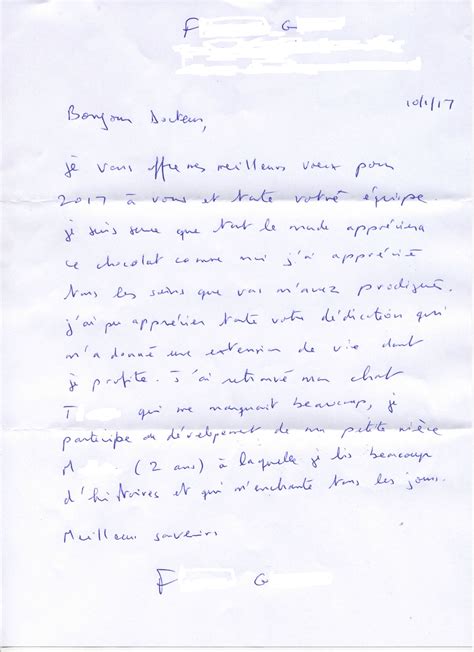 F G
10/1/17
Bonjour Docteur,
je vous offre mes meilleurs voeux pour
2017 à vous et toute votre équipe.
je suis sure que tout le monde appréciera
ce chocolat comme moi j'ai apprécié
tous les soins que vous m'avez prodigués.
j'ai pu apprécier toute votre dédication qui
m'a donné une extension de vie dont
je profite. J'ai retrouvé mon chat
T qui me manquait beaucoup, je
participe au dévelopement de ma petite nièce
M (2 ans) à laquelle je lis beaucoup
d'histoires et qui m'enchante tous les jours.
Meilleurs souvenirs
F G